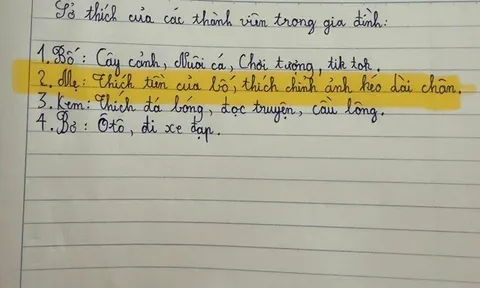 Sở thích của các thành viên trong gia đình:
1. Bố: Cây cảnh, Nuôi cá, Chơi tướng, tik tok.
2. Mẹ: Thích tiền của bố, thích chỉnh ảnh kéo dài chân.
3. Kem: Thích đá bóng, đọc truyện, cầu lông.
4. Bơ: Ô tô, đi xe đạp.